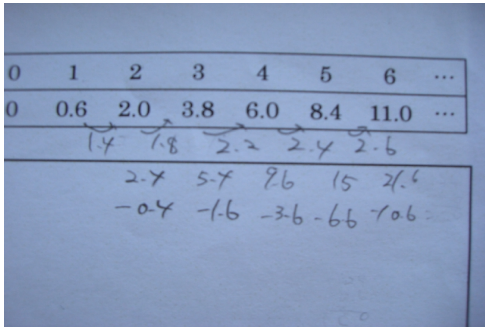 0 1 2 3 4 5 6 ...
0 0.6 2.0 3.8 6.0 8.4 11.0 ...
1.4 1.8 2.2 2.4 2.6
2.4 5.4 9.6 15 21.6
-0.4 -1.6 -3.6 -6.6 -10.6